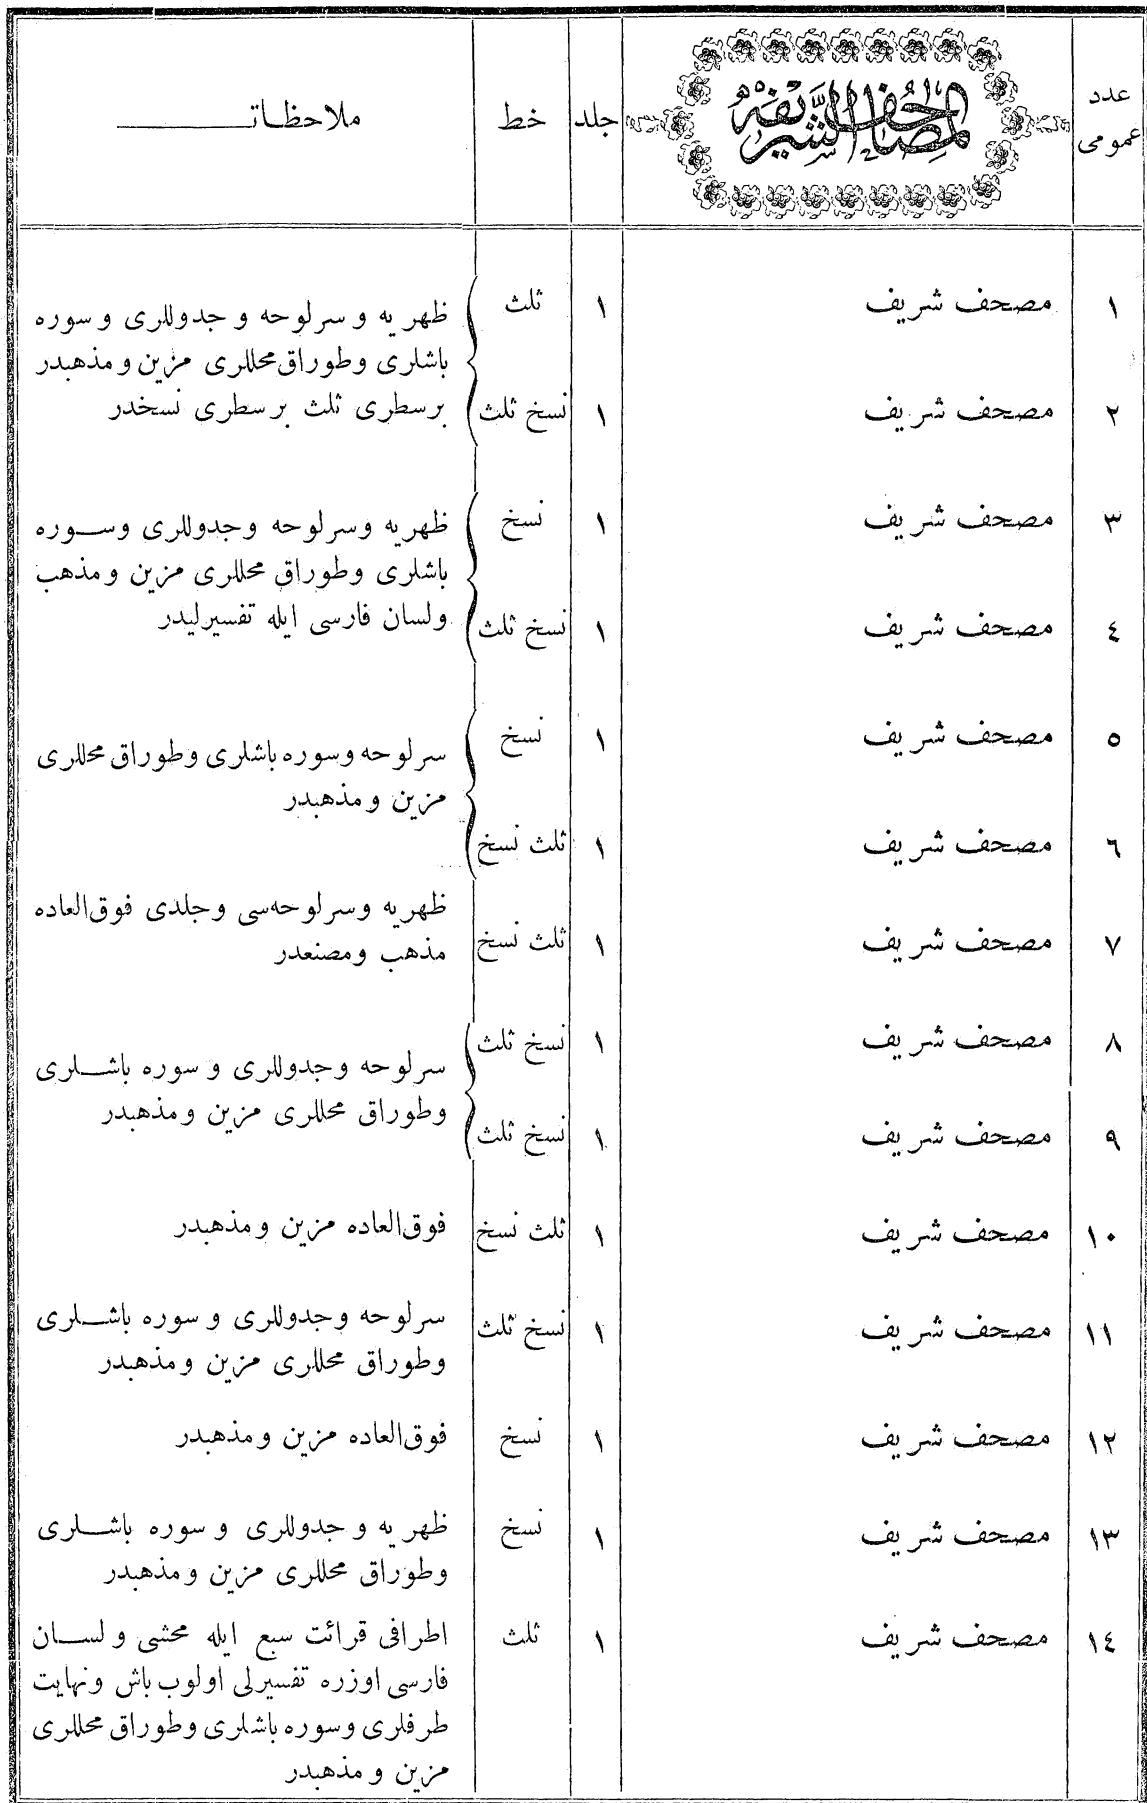 عدد عمومی | المصاحف الشریفه | جلد | خط | ملاحظات
١ | مصحف شریف | ١ | ثلث
٢ | مصحف شریف | ١ | نسخ ثلث
ظهریه و سرلوحه و جدوللری و سوره
باشلری وطوراق محللری مزین ومذهبدر
برسطری ثلث برسطری نسخدر
٣ | مصحف شریف | ١ | نسخ
٤ | مصحف شریف | ١ | نسخ ثلث
ظهریه وسرلوحه وجدوللری وسوره
باشلری وطوراق محللری مزین ومذهب
ولسان فارسی ایله تفسیرلیدر
٥ | مصحف شریف | ١ | نسخ
٦ | مصحف شریف | ١ | ثلث نسخ
سرلوحه وسوره باشلری وطوراق محللری
مزین ومذهبدر
٧ | مصحف شریف | ١ | ثلث نسخ
ظهریه وسرلوحه‌سی وجلدی فوق‌العاده
مذهب ومصنعدر
٨ | مصحف شریف | ١ | نسخ ثلث
٩ | مصحف شریف | ١ | نسخ ثلث
سرلوحه وجدوللری و سوره باشلری
وطوراق محللری مزین ومذهبدر
١٠ | مصحف شریف | ١ | ثلث نسخ | فوق‌العاده مزین ومذهبدر
١١ | مصحف شریف | ١ | نسخ ثلث
سرلوحه وجدوللری و سوره باشلری
وطوراق محللری مزین ومذهبدر
١٢ | مصحف شریف | ١ | نسخ | فوق‌العاده مزین ومذهبدر
١٣ | مصحف شریف | ١ | نسخ
ظهریه و جدوللری و سوره باشلری
وطوراق محللری مزین ومذهبدر
١٤ | مصحف شریف | ١ | ثلث
اطرافی قرائت سبع ایله محشی ولسان
فارسی اوزره تفسیرلی اولوب باش ونهایت
طرفلری وسوره باشلری وطوراق محللری
مزین و مذهبدر